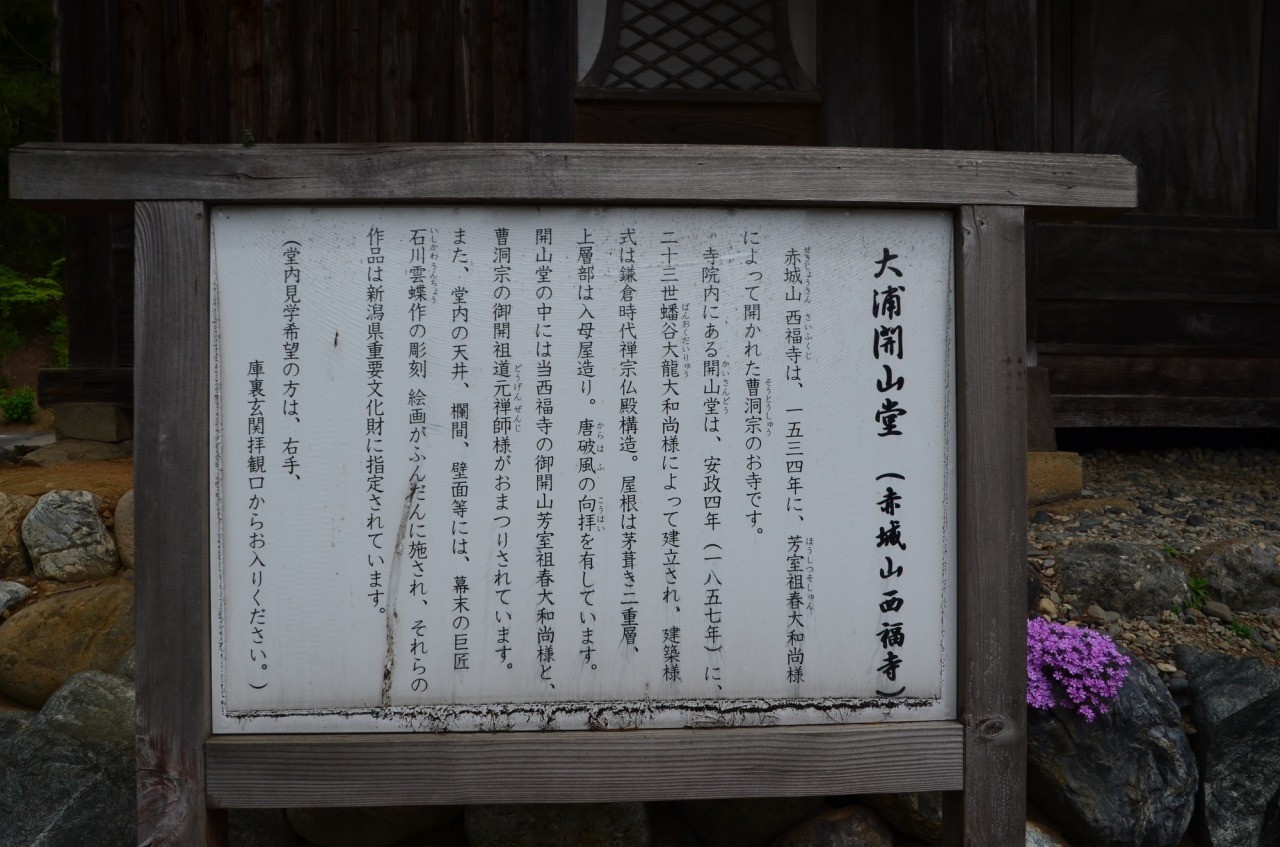 大浦開山堂 (赤城山西福寺)
赤城山 西福寺は、一五三四年に、芳室祖春大和尚様
によって開かれた曹洞宗のお寺です。
寺院内にある開山堂は、安政四年(一八五七年)に、
二十三世蟠谷大龍大和尚様によって建立され、建築様
式は鎌倉時代禅宗仏殿構造。屋根は茅葺き二重層、
上層部は入母屋造り。唐破風の向拝を有しています。
開山堂の中には当西福寺の御開山芳室祖春大和尚様と、
曹洞宗の御開祖道元禅師様がおまつりされています。
また、堂内の天井、欄間、壁面等には、幕末の巨匠
石川雲蝶作の彫刻 絵画がふんだんに施され、それらの
作品は新潟県重要文化財に指定されています。
(堂内見学希望の方は、右手、
庫裏玄関拝観口からお入りください。)